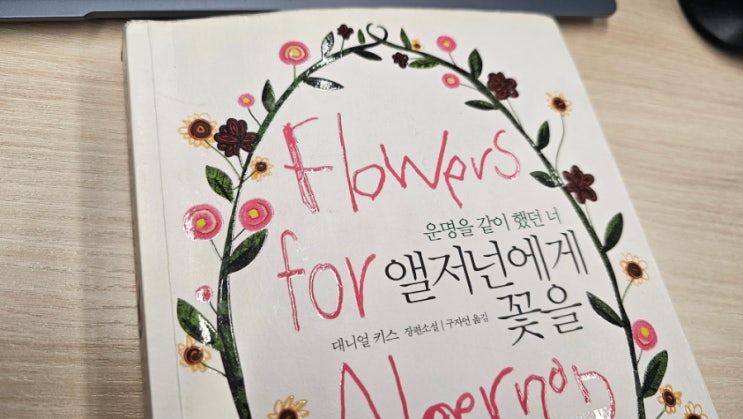 Flowers
운명을 같이 했던 너
for 앨저넌에게
꽃을
대니얼 키스 장편소설 | 구자언 옮김
Algernon